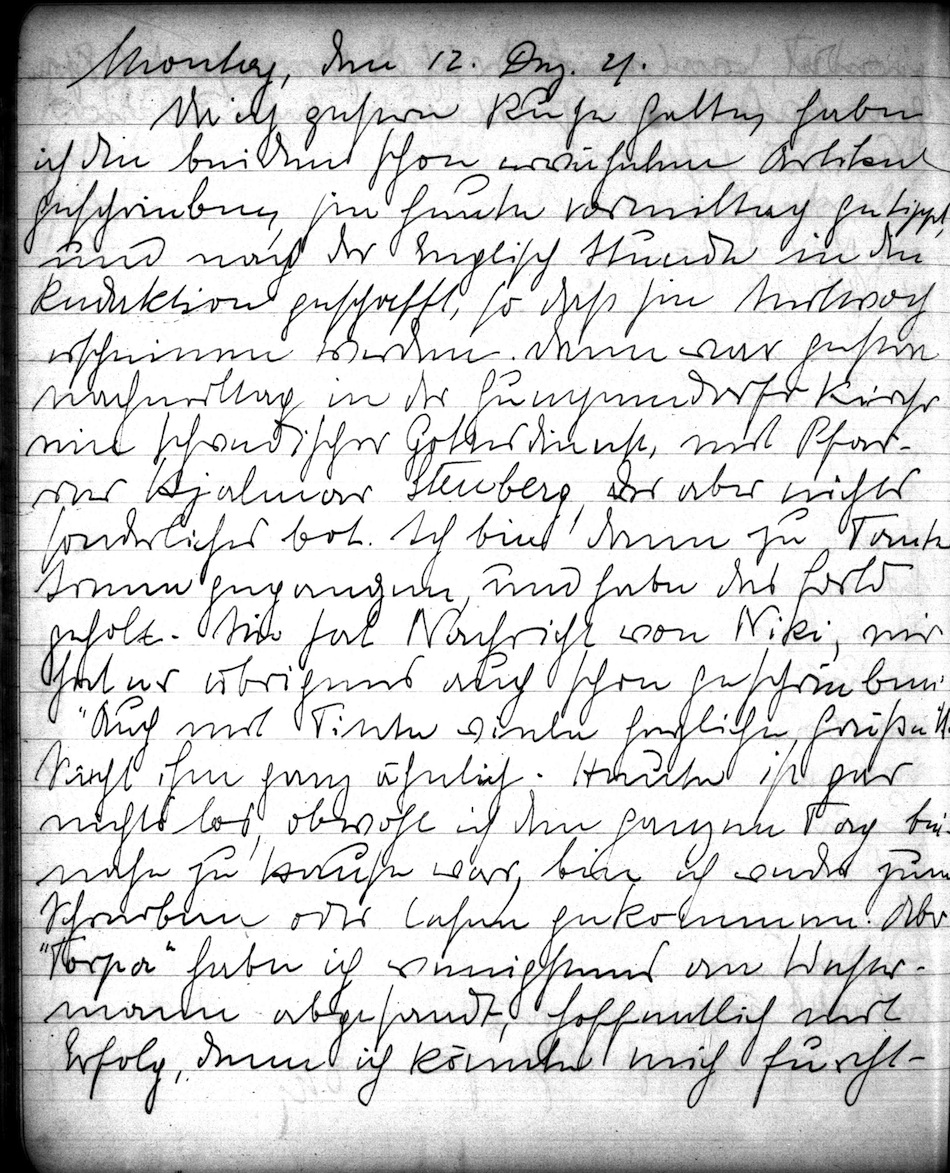 Montag, den 12. Dez. 21.
Mich gestern Ruhe haltend, habe
ich die beiden schon erwähnten Artikel
geschrieben, sie heute vormittag getippt,
und nach der Englisch Stunde in die
Redaktion geschafft, so dass sie Mittwoch
erscheinen werden. Dann war gestern
nachmittag in der Gumpendorfer Kirche
ein schwedischer Gottesdienst, mit Pfar-
rer Hjalmar Stenberg, der aber nichts
sonderliches bot. Ich bin dann zu Tante
gegangen, und habe das Geld
geholt. Sie hat Nachricht von Niki, mir
hat er übrigens auch schon geschrieben:
"Auch mit Tinte viele herzliche Grüße"
Sieht ihm ganz ähnlich. Heute ist gar
nichts los, obwohl ich den ganzen Tag bei-
nahe zu Hause war, bin ich weder zum
Schreiben oder Lesen gekommen. Aber
"Torpa" habe ich wenigstens an Wasser-
mann abgesandt, hoffentlich mit
Erfolg, denn ich könnte mich furcht-